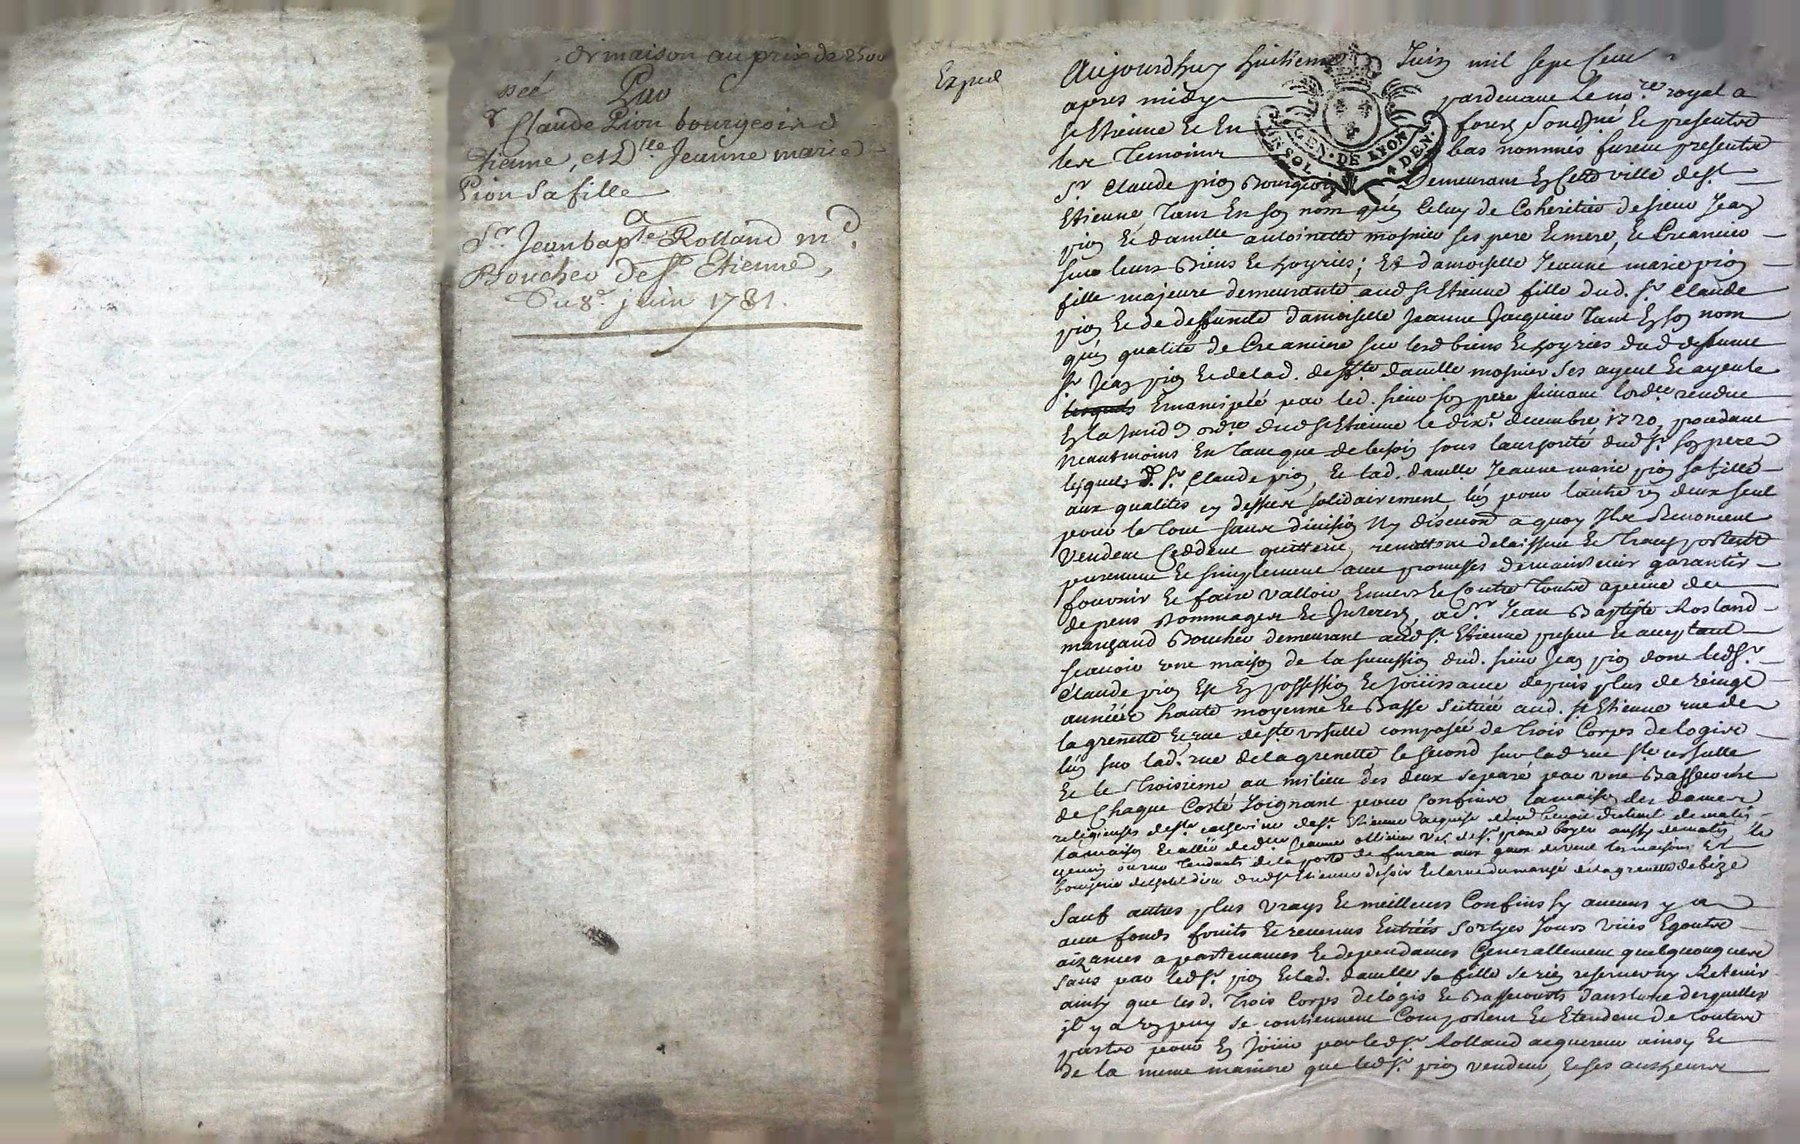 maison au prix de 2500
Par
Sr Claude Pion bourgeois d
Etienne, et Dlle Jeanne marie
Pion sa fille
a
Sr Jean bapte Rolland md
Boucher de St Etienne,
Du 8e juin 1781.
Exped
Aujourdhuy huitieme Juin mil sept cent
apres midy pardevant le nore royal a
St Etienne et En forez soussigné et presents
les Temoins bas nommés furent presents
GEN. DE LYON
Sr Claude pion Bourgeois Demeurant En cette ville de St
Etienne tant En son nom qu'en Celuy de Coheritier de sieur Jean
pion et damlle antoinette mosnier ses pere et mere, et Creancier
sur leurs Biens et hoyries; Et damoiselle Jeanne marie pion
fille majeure demeurante aud St Etienne fille dud. Sr Claude
pion et de deffunte damoiselle Jeanne Jacquier tant En son nom
qu'en qualité de Creanciere sur lesd biens et hoyries dud deffunt
Sr Jean pion et de lad. deffte damlle mosnier ses ayeul et ayeule
Emancipée par led. sieur son pere suivant lordce rendue
dud St Etienne le dixe decembre procedant
neantmoins En tant que de besoin sous lautorité dud Sr son pere
lesquels d. Sr Claude pion, et lad. damlle Jeanne marie pion sa fille
aux qualités cy dessus solidairement, l'un pour l'autre en deux seul
pour le tout sans division ny discuon a quoy Ils Renoncent
vendent Ceddent quittent, remettent delaissent et transportent
purement et simplement avec promesses de maintenir garantir
fournir et faire valloir Envers et Contre touts a peine de
depens Dommages et Interets, a Sr Jean Baptiste Rolland
marchand Boucher demeurant aud St Etienne present et acceptant
scavoir une maison de la succession dud. sieur Jean pion dont led Sr
Claude pion Est En possession et jouissance depuis plus de vingt
années haute moyenne et Basse Scituée aud. St Etienne rue de
la grenette et rue de ste ursulle composée de Trois Corps de logis
l'un sur lad. rue de la grenette, le second sur lad rue ste ursulle
Et le Troisieme au milieu des deux separé par une Bassecour
de Chaque Costé Joignant pour Confins la maison des dames
religieuses de ste catherine de St Etienne acquise de matin
la maison et allée de dlle Jeanne
de la porte de furan aux
de St Etienne de soir et la rue du marché de la grenette de bize
Sauf autres plus vrays et meilleurs Confins sy aucuns y a
avec fonds fruits et revenus Entrées Sortyes Jours viies Egouts
aizances apartenances et dependances Generallement quelquonques
sans par led Sr pion et lad. damlle sa fille se rien reserver ny Retenir
ainsy que les d. trois Corps de logis et Bassecourts
il y a se contiennent Comportent et Etendent de toutes
parts pour En joüir par led Sr Rolland acquereur ainsy et
de la meme maniere que led Sr pion vendeur, et ses autheurs